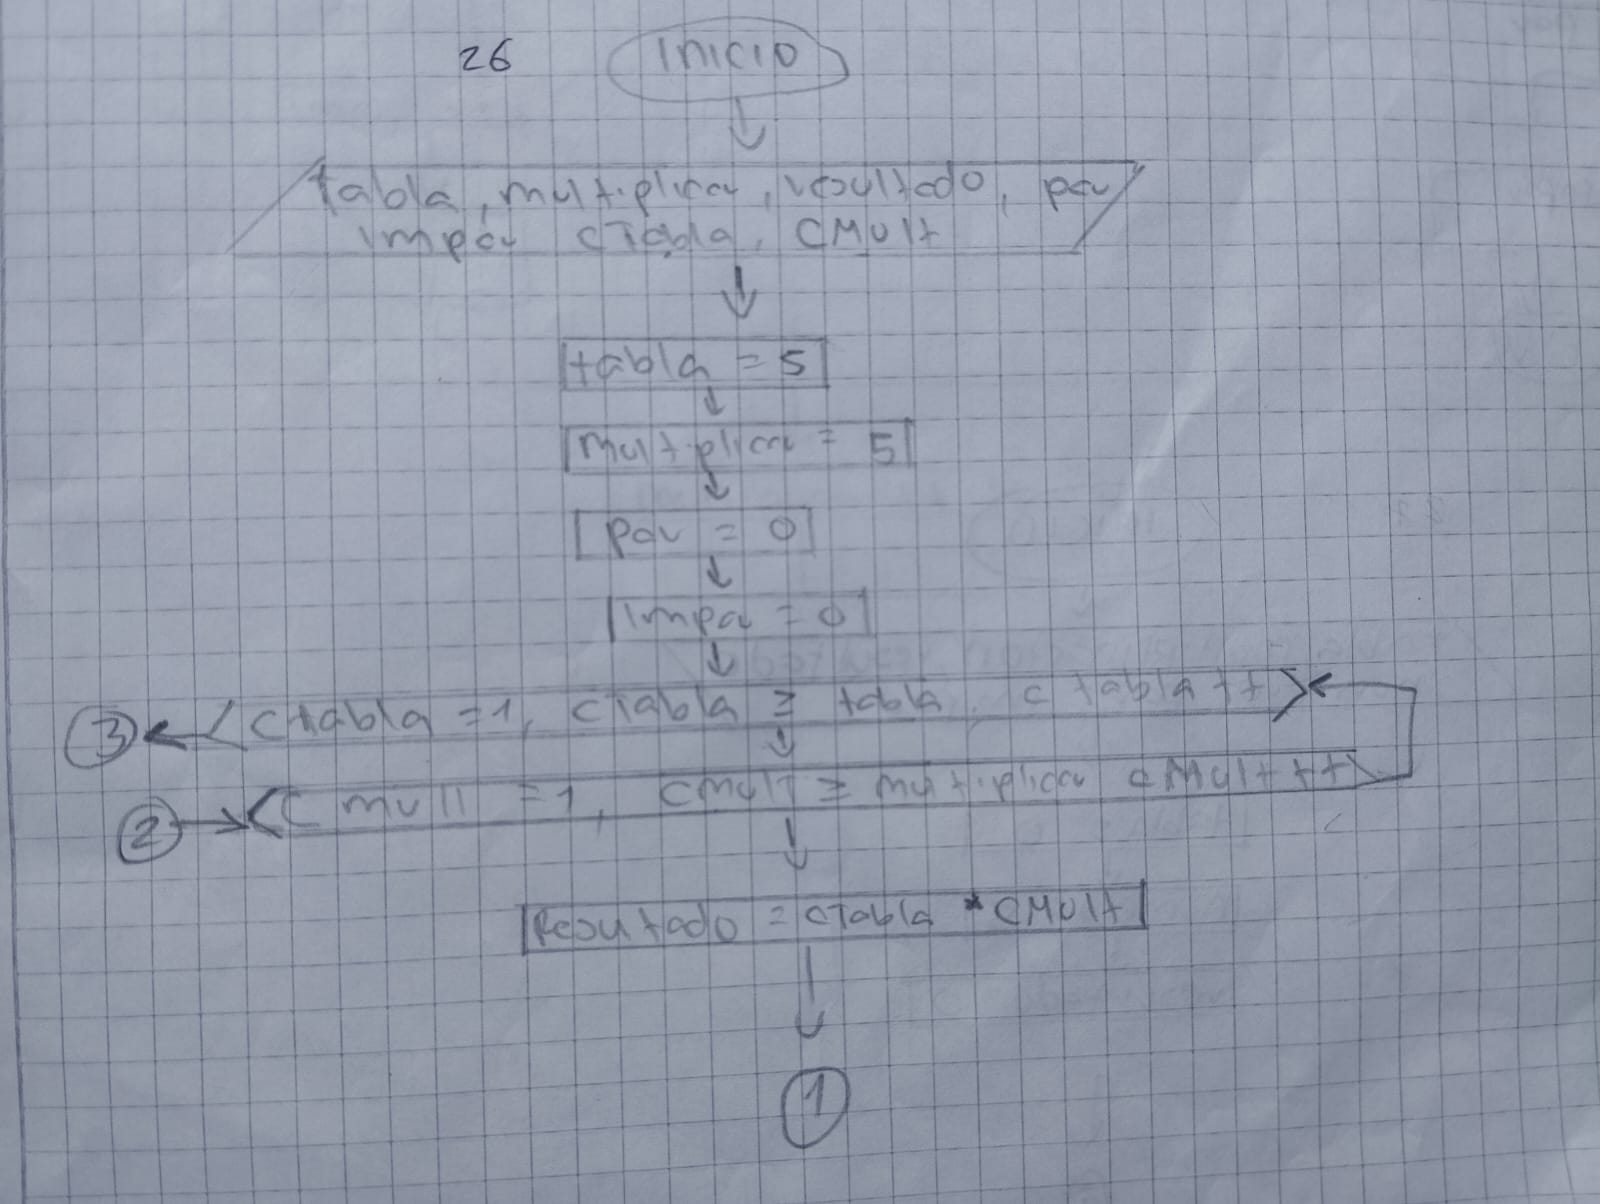 26 INICIO
tabla, multiplicar, resultado, par
impar cTabla, CMult
tabla = 5
multiplicar = 5
par = 0
Impar = 0
3 ctabla = 1, cTabla ≥ tabla, ctabla ++
2 C mult = 1, cmult ≥ multiplicar cMult ++
Resultado = cTabla * CMult
1